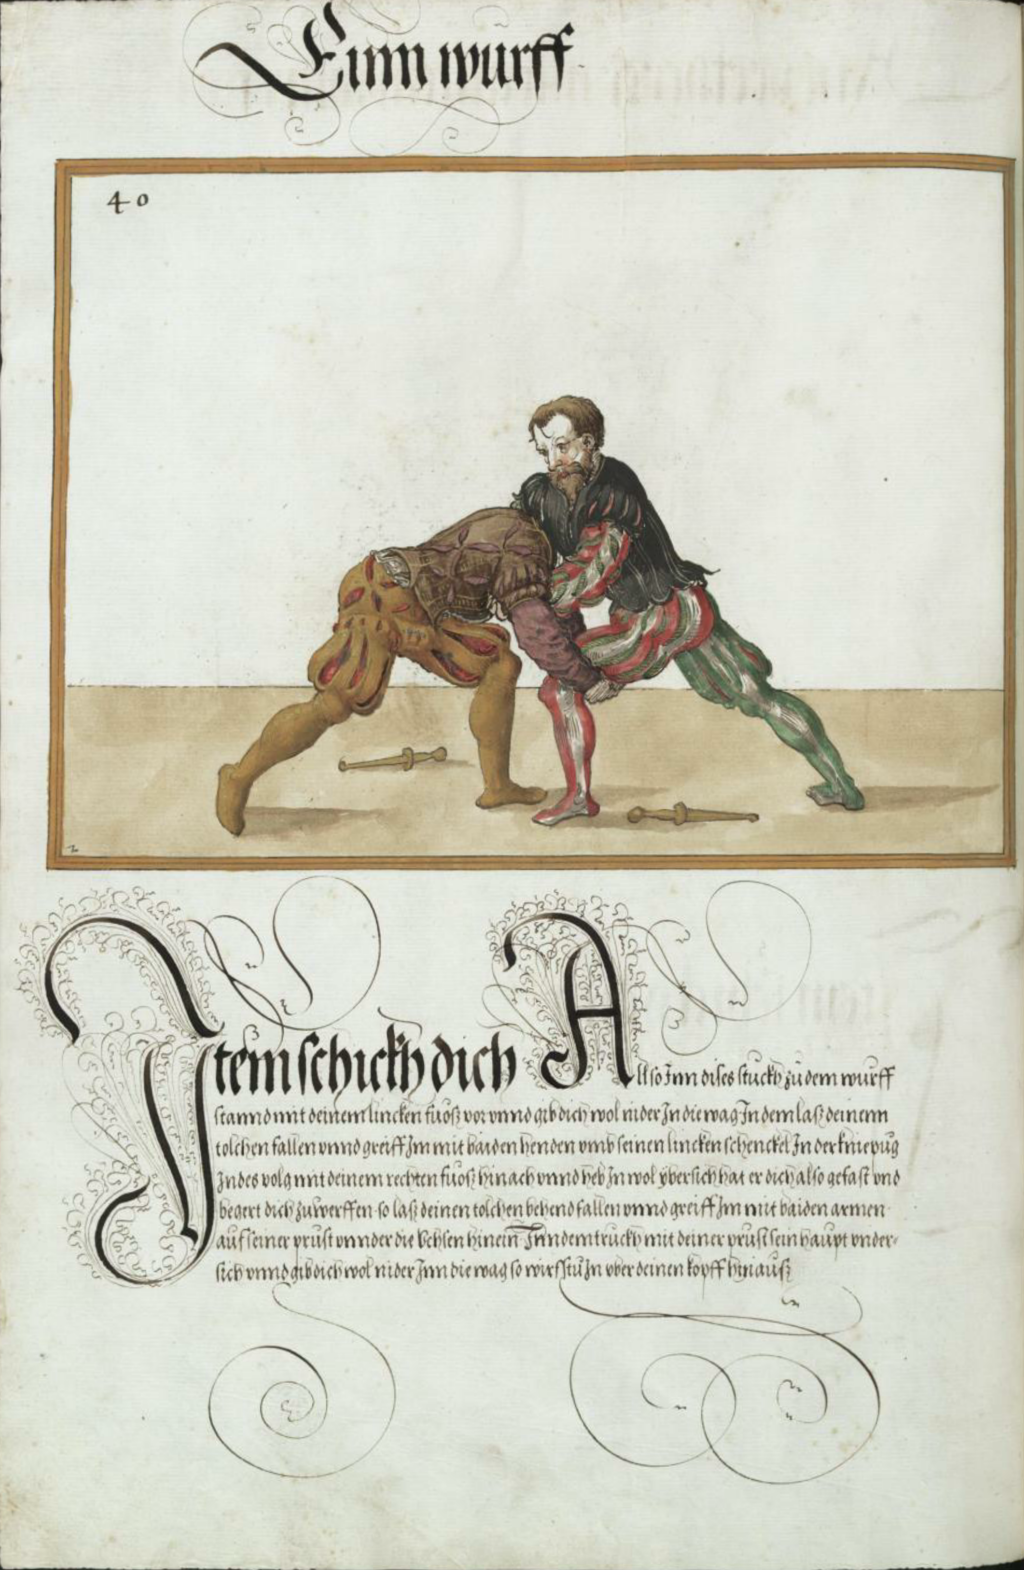 Einn wurff
40
Item schickh dich Allso Inn dises stuckh zu dem wurff
stannd mit deinem lincken fuosz vor vnnd gib dich wol nider In die wag Indem lasz deinenn
tolchen fallen vnnd greiff Im mit baiden henden vmb seinen lincken schenckel In der kniepug
Indes volg mit deinem rechten fuosz hinach vnnd heb In wol ybersich hat er dich also gefast vnd
begert dich zuwerffen so lasz deinen tolchen behend fallen vnnd greiff Im mit baiden armen
auf seiner prust vnnder die Vchsen hinein Inn dem truckh mit deiner prust sein haupt vnder-
sich vnnd gib dich wol nider Inn die wag so wirfstu In vber deinen kopff hinausz